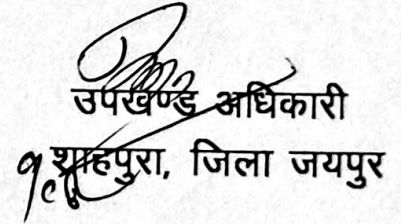 उपखण्ड अधिकारी
शाहपुरा, जिला जयपुर